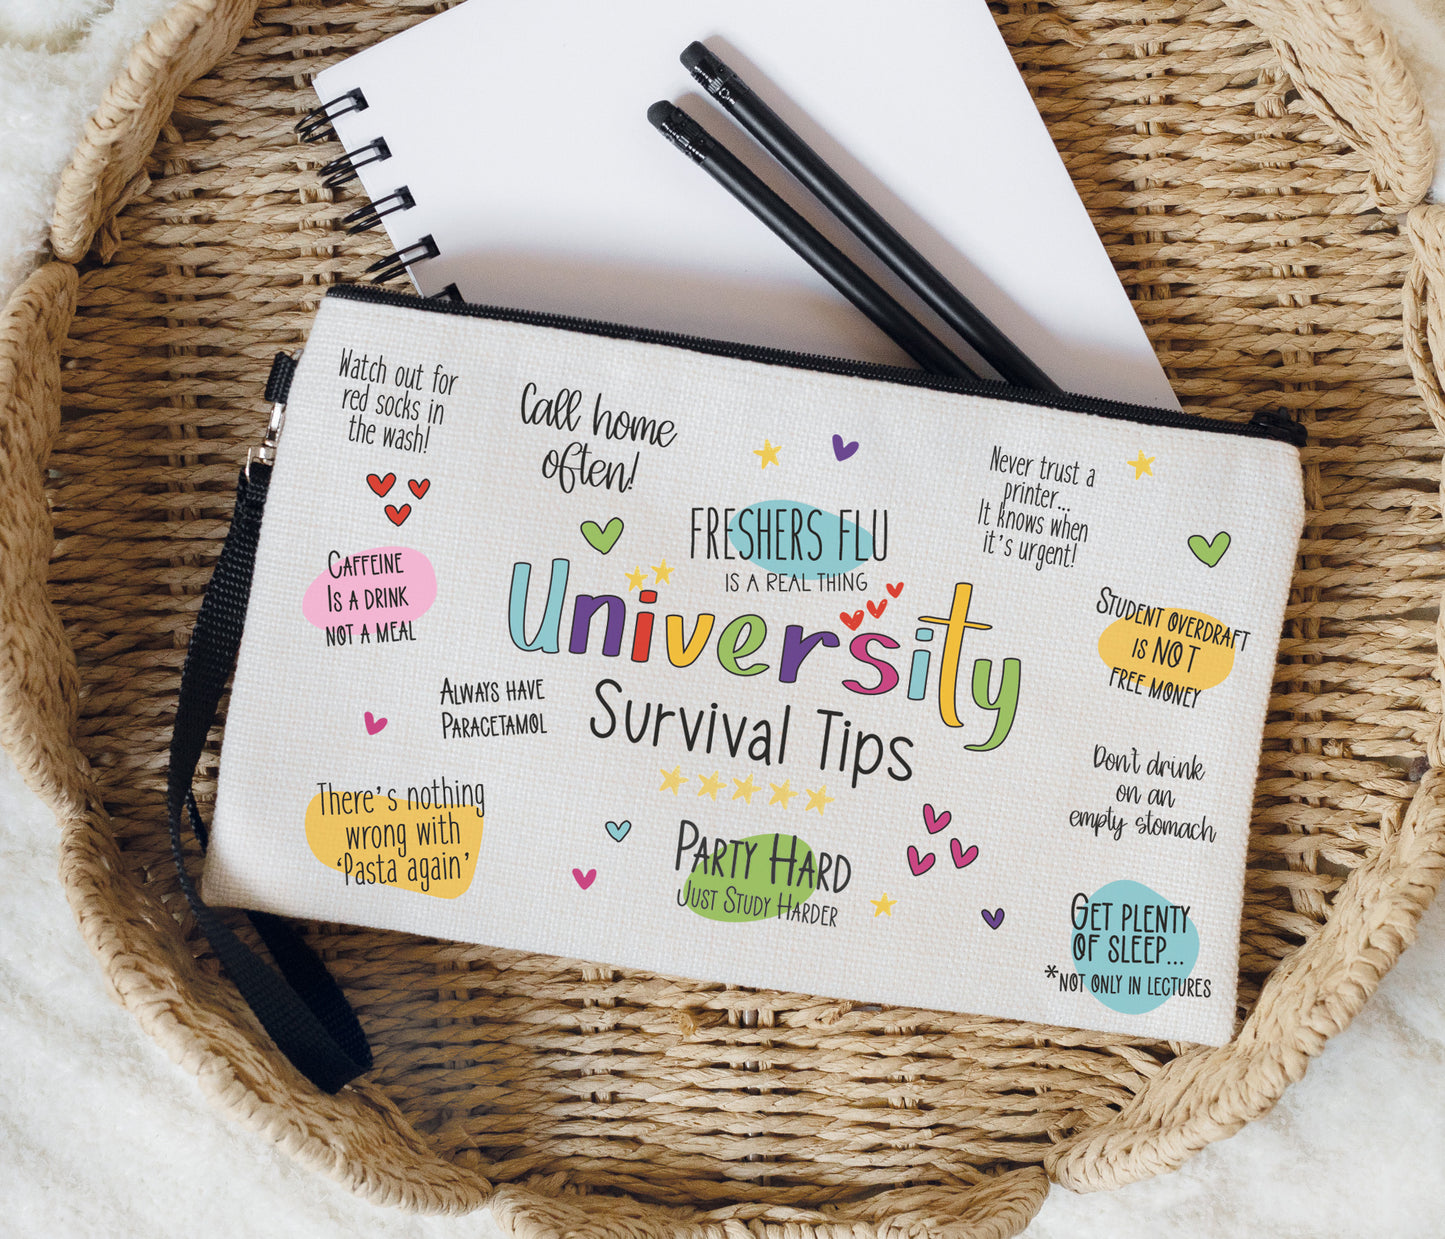 Watch out for
red socks in
the wash!
Call home
often!
Never trust a
printer...
It knows when
it's urgent!
FRESHERS FLU
IS A REAL THING
CAFFEINE
IS A DRINK
NOT A MEAL
University
Survival Tips
STUDENT OVERDRAFT
IS NOT
FREE MONEY
ALWAYS HAVE
PARACETAMOL
There's nothing
wrong with
'Pasta again'
PARTY HARD
JUST STUDY HARDER
Don't drink
on an
empty stomach
GET PLENTY
OF SLEEP...
*NOT ONLY IN LECTURES